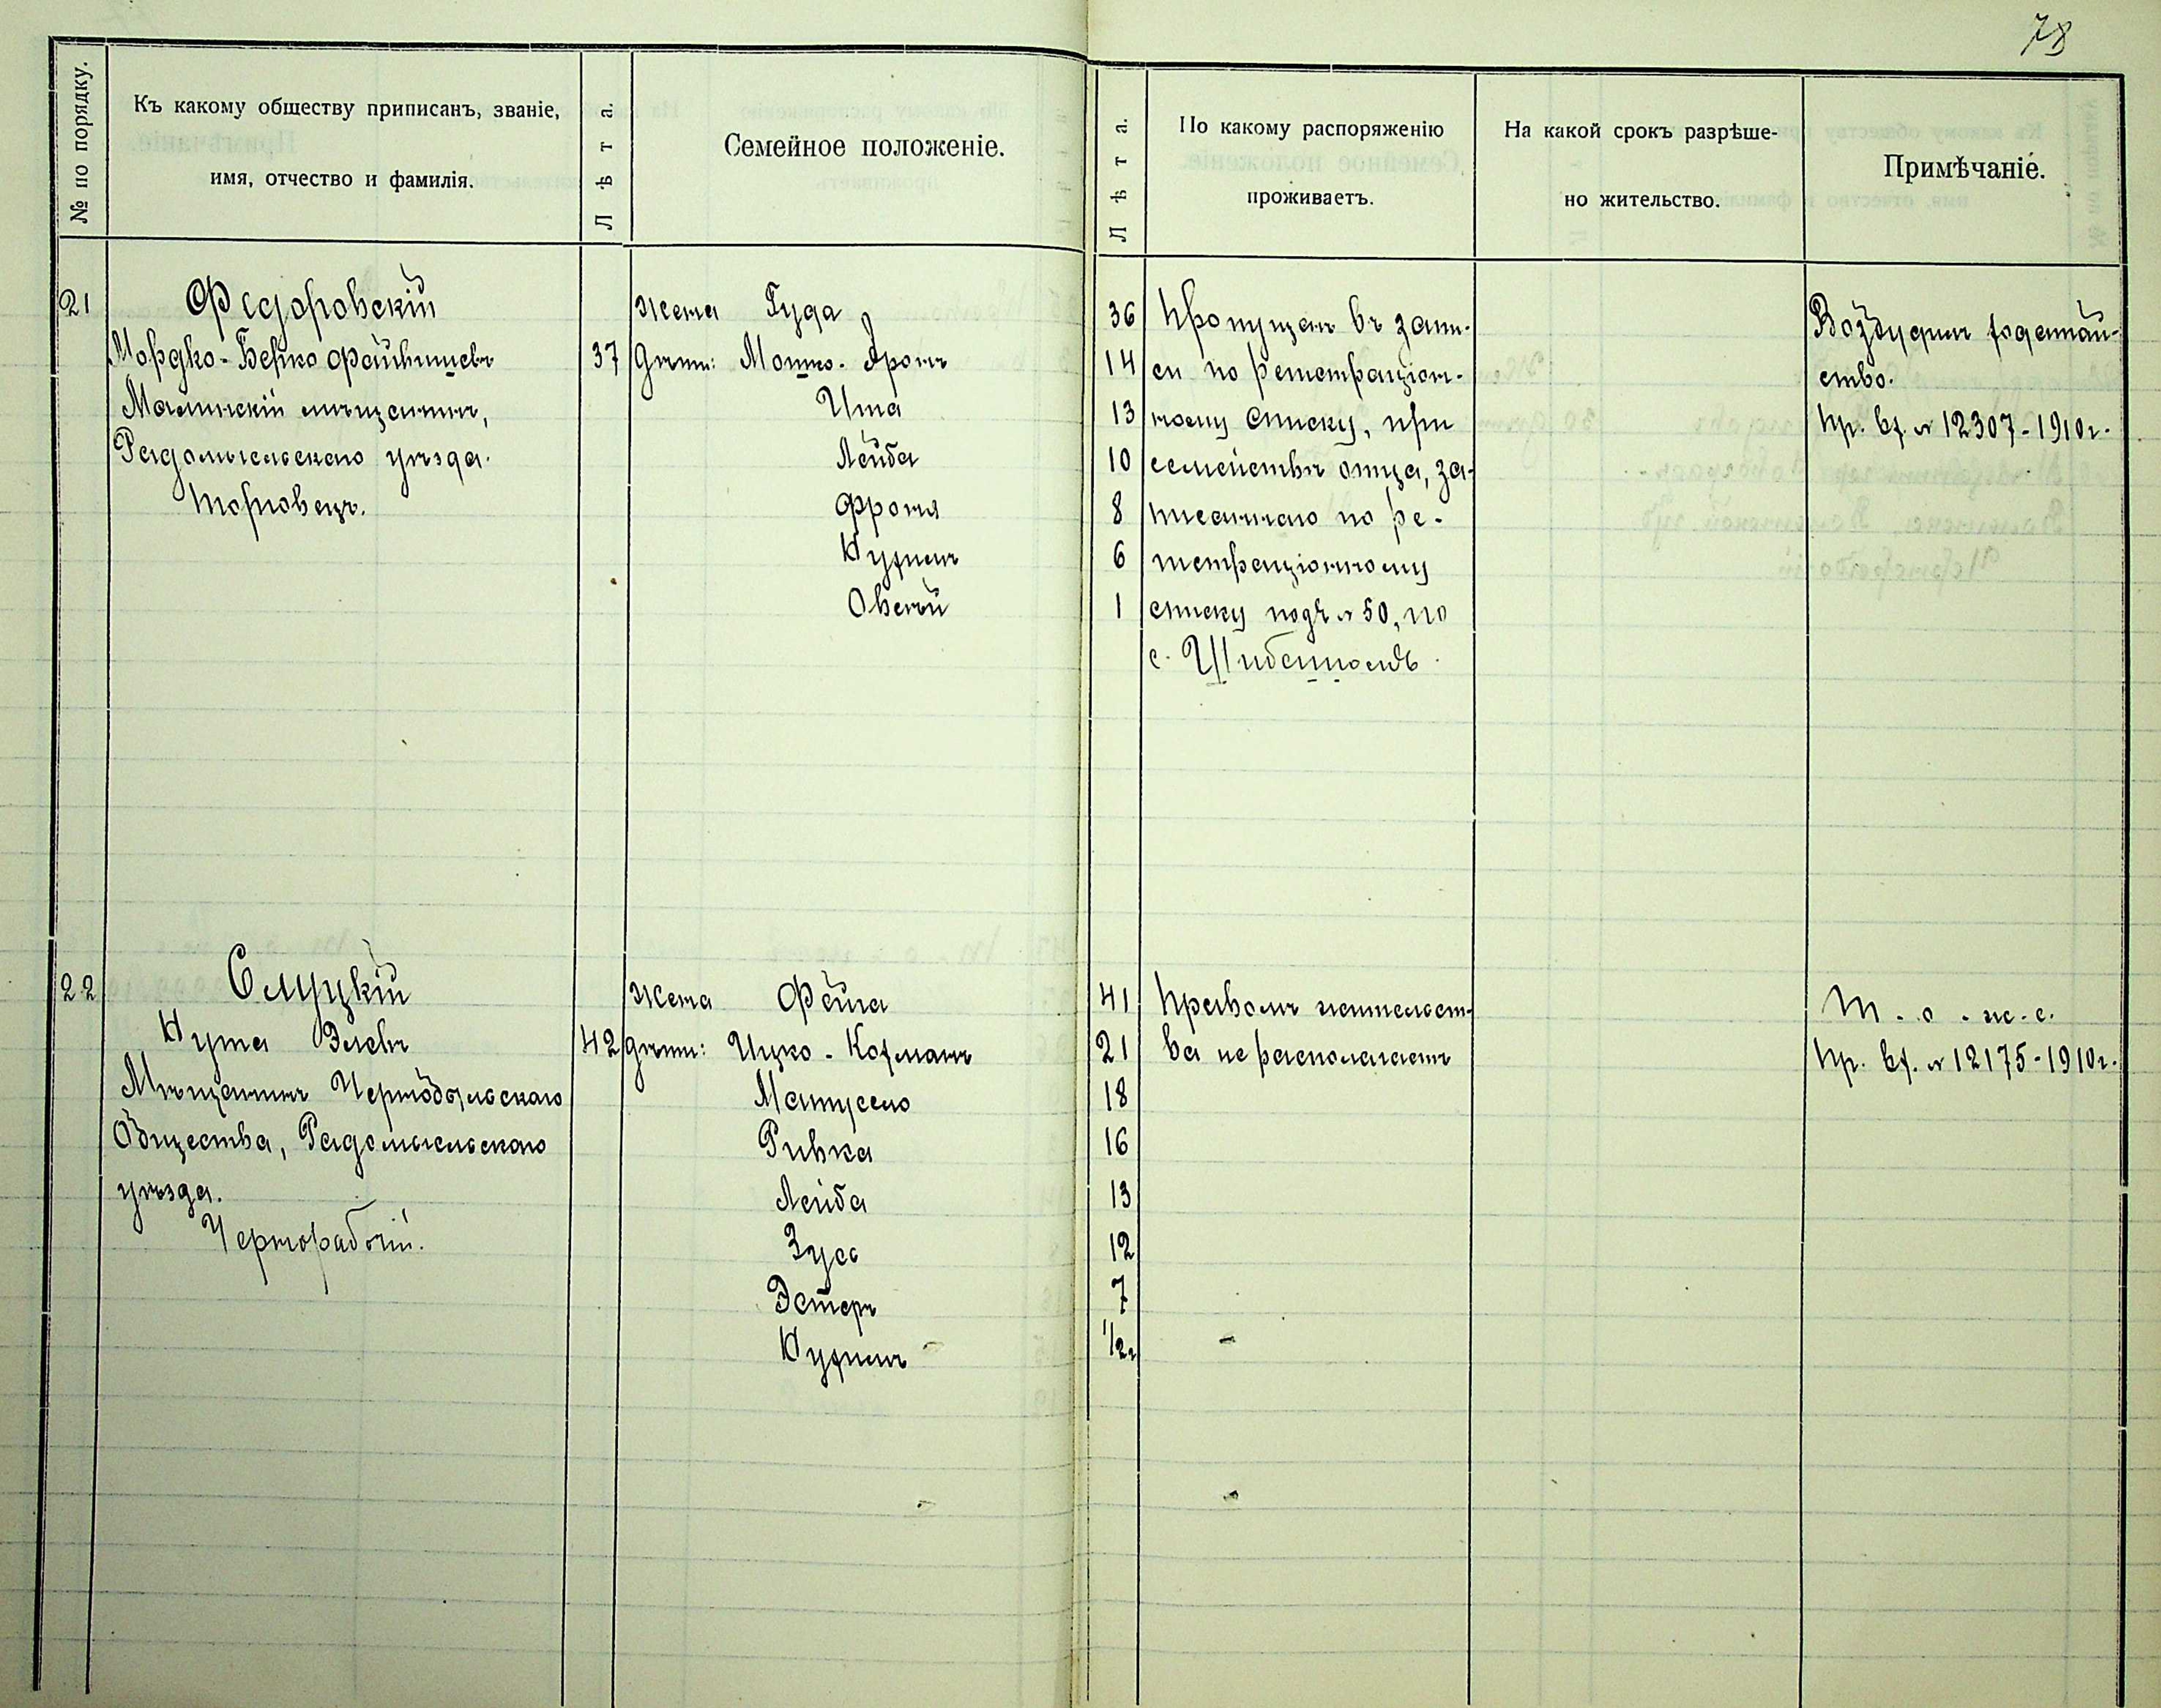 78
№ по порядку.
Къ какому обществу приписанъ, званіе,
имя, отчество и фамилія.
Лѣта.
Семейное положеніе.
Лѣта.
По какому распоряженію
проживаетъ.
На какой срокъ разрѣше-
но жительство.
Примѣчаніе.
21
Федоровскій
Мордко-Берко Файвишевъ
Малинскій мѣщанинъ,
Радомысльскаго уѣзда.
Торговецъ.
37
Жена Гуда 36
Дѣти: Мошко-Аронъ 14
Ита 13
Лейба 10
Фроня 8
Нухимъ 6
Овсѣй 1
Пропущенъ въ запи-
си по регистраціон-
ному списку, при
семействѣ отца, за-
писаннаго по ре-
гистраціонному
списку подъ № 50, по
с. Шибенномъ.
Возбудилъ ходатай-
ство.
Пр. вх. № 12307-1910г.
22
Слуцкій
Нута Элевъ
Мѣщанинъ Чернобыльскаго
Общества, Радомысльскаго
уѣзда.
Чернорабочій.
42
Жена Фейга 41
Дѣти: Ицко-Кофманъ 21
18
Ривка 16
Лейба 13
Зусь 12
Эстеръ 7
Нухимъ 1/2г
Правомъ жительст-
ва не располагаетъ
Т-о-ж-е.
Пр. вх. № 12175-1910г.